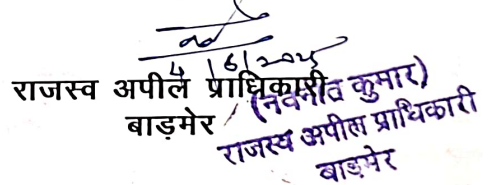 4/6/2025
राजस्व अपील प्राधिकारी
बाड़मेर
(नवनीत कुमार)
राजस्व अपील प्राधिकारी
बाडमेर